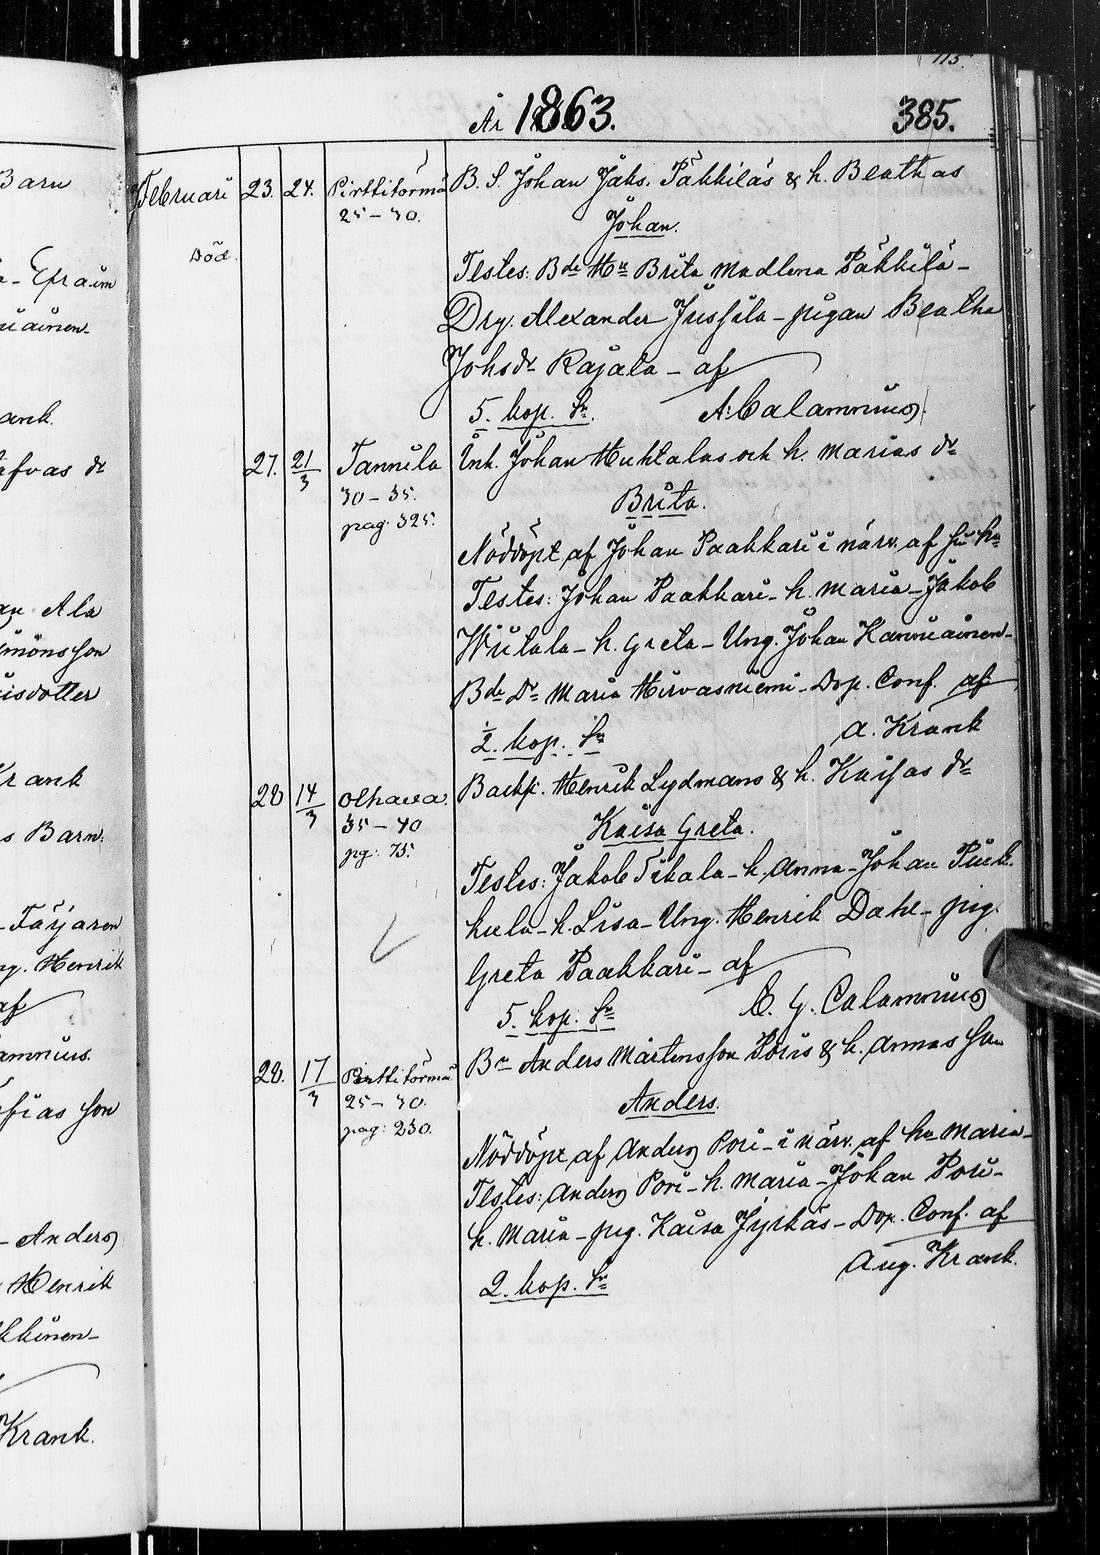 115.
År 1863. 385.
Barn
Efraim
ank.
afvas dr
Ala
Simonsson
dotter
Krank
s Barn.
Färjaren
Henrik
af
fias son
Anders
Henrik
Krank.
Februari 23. 24. Pirttitörmä B. S. Johan Jaks. Päkkiläs & h. Beathas
25-30. Johan.
Död.
Testes: Bde Mn Brita Madlena Päkkilä-
Drg. Alexander Jussila- pigan Beatha
Johsdr Rajala- af
5. kop. Sr. A: Calamnius.
27. 21/3 Tannila Inh. Johan Huhtalas och h. Marias dr
30-35. Brita.
pag: 325.
Nöddöpt af Johan Paakkari i närv. af
Testes: Johan Paakkari- h. Maria- Jakob
Wiitala- h. Greta- Ung. Johan Kannuainen-
Bde Dr Maria Hirvasniemi- Dop. Conf. af
2. kop. Sr A. Krank
28 14/3 Olhava. Backst. Henrik Lydmans & h. Kaisas dr
35-40 Kaisa Greta.
pg: 75.
Testes: Jakob Tikala- h. Anna- Johan Puuk-
kula- h. Lisa- Ung. Henrik Dahl- pig.
Greta Paakkari- af
5. kop. Sr C. G. Calamnius
28. 17/3 Pirttitörmä Bn Anders Mårtensson Poris & h. Annas son
25-30. Anders.
pag: 230.
Nöddöpt af Anders Pori- i närv. af hn Maria-
Testes: Anders Pori- h. Maria- Johan Pori-
h. Maria- pig. Kaisa Jyrkäs- Dop. Conf. af
2. kop. Sr Aug. Krank.